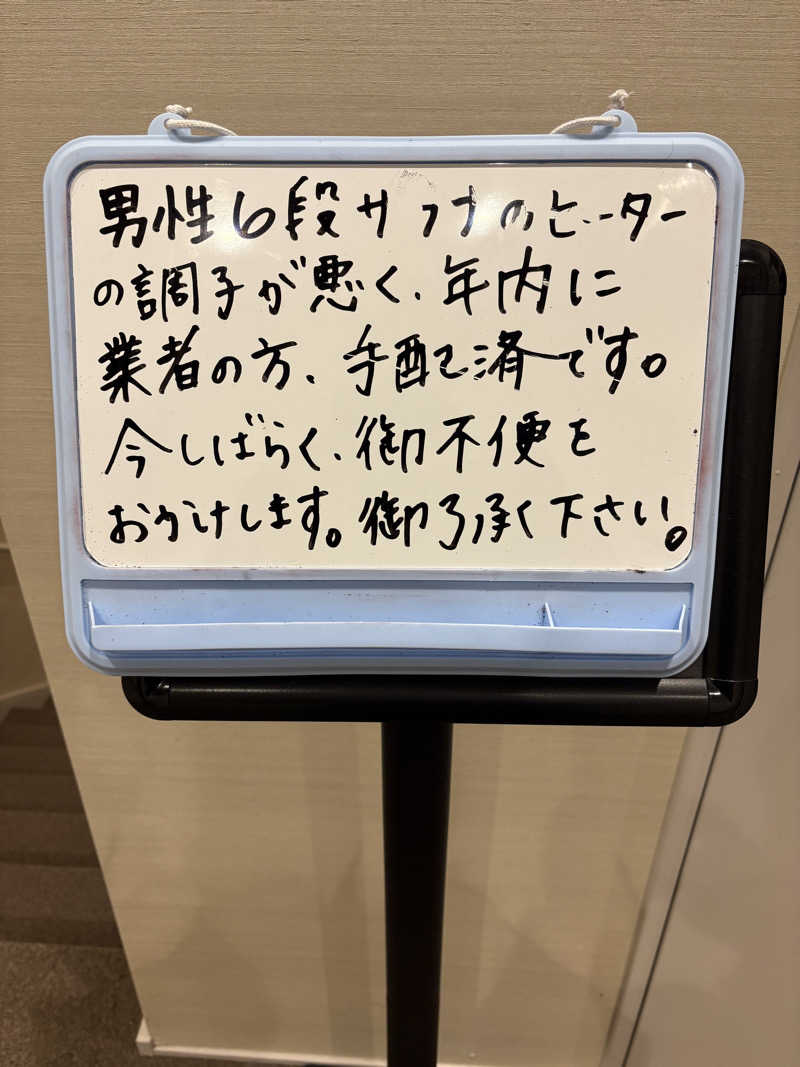 男性6段サウナのヒーター
の調子が悪く、年内に
業者の方、手配て済です。
今しばらく、御不便を
おかけします。御了承く下さい。